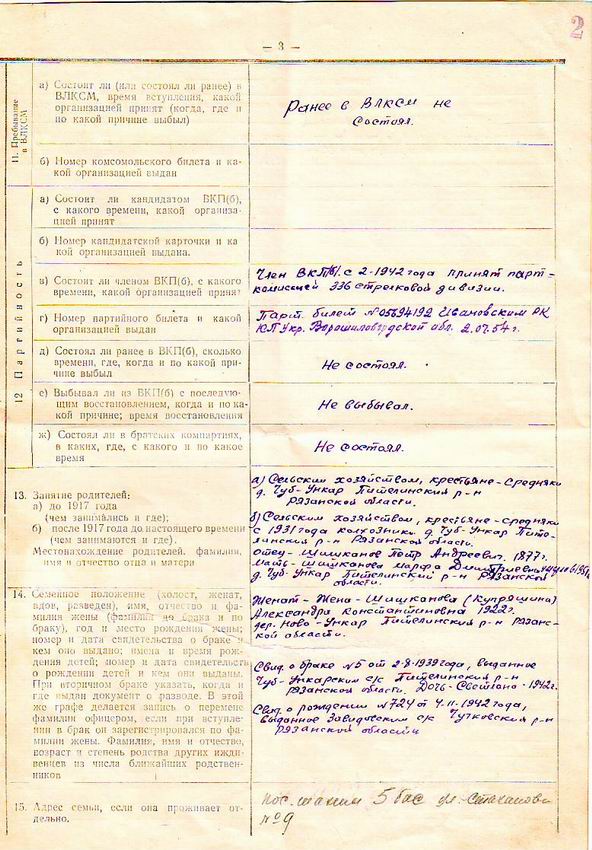 2
— 3 —
11. Пребывание в ВЛКСМ
а) Состоит ли (или состоял ли ранее) в
ВЛКСМ, время вступления, какой
организацией принят (когда, где и
по какой причине выбыл)
Ранее в ВЛКСМ не
состоял.
б) Номер комсомольского билета и ка-
кой организацией выдан
12 Партийность
а) Состоит ли кандидатом ВКП(б),
с какого времени, какой организа-
цией принят
б) Номер кандидатской карточки и ка
кой организацией выдана.
в) Состоит ли членом ВКП(б), с какого
времени, какой организацией принят
Член ВКП/б/. с 2-1942 года принят парт-
комиссией 336 стрелковой дивизии.
г) Номер партийного билета и какой
организацией выдан
Парт. билет №05694192 Ивановским РК
КП Укр. Ворошиловградской обл. 2.07.54 г.
д) Состоял ли ранее в ВКП(б), сколько
времени, где, когда и по какой при-
чине выбыл
Не состоял.
е) Выбывал ли из ВКП(б) с последую-
щим восстановлением, когда и по ка-
кой причине; время восстановления
Не выбывал.
ж) Состоял ли в братских компартиях,
в каких, где, с какого и по какое
время
Не состоял.
13. Занятие родителей:
а) до 1917 года
(чем занимались и где);
б) после 1917 года до настоящего времени
(чем занимаются и где).
Местонахождение родителей, фамилия,
имя и отчество отца и матери
а) Сельским хозяйством, крестьяне-средняки
д. Чуб-Ункар Пителинский р-н
Рязанской области.
б) Сельским хозяйством, крестьяне-средняки
с 1931 года колхозники д. Чуб-Ункар Пите-
линский р-н Рязанской области.
отец-Шишканов Пётр Андреевич. 1877г.
мать-Шишканова Марфа Дмитриевна
д. Чуб-Ункар Пителинский р-н Рязанской
области.
14. Семейное положение (холост, женат,
вдов, разведен), имя, отчество и фа-
милия жены (фамилия до брака и по
браку), год и место рождения жены;
номер и дата свидетельства о браке и
кем оно выдано; имена и время рож-
дения детей; номер и дата свидетельств
о рождении детей и кем они выданы.
При вторичном браке указать, когда и
где выдан документ о разводе. В этой
же графе делается запись о перемене
фамилии офицером, если при вступле-
нии в брак он зарегистрировался по фа-
милии жены. Фамилия, имя и отчество,
возраст и степень родства других ижди-
венцев из числа ближайших родствен-
ников
Женат-Жена-Шишканова (Купряшина)
Александра Константиновна 1922г.
дер. Ново-Ункар Пителинский р-н Рязанс-
кой области.
Свид. о браке №5 от 2-8-1939 года, выданное
Чуб-Ункарским с/с Пителинский р-н
Рязанской области. Дочь-Светлана-1942г.
Свид. о рождении №724 от 4-11-1942 года,
выданное Заводческим с/с Чучковский р-н
Рязанской области
15. Адрес семьи, если она проживает от-
дельно.
пос. шахты 5 бас ул. Стаханова
№9